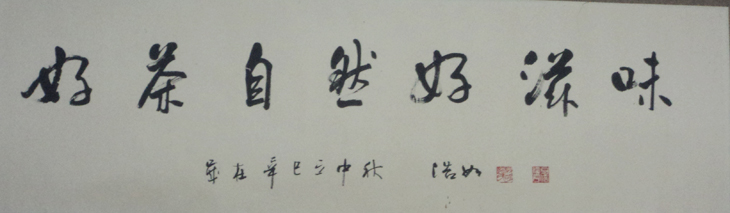 好茶自然好滋味
岁在辛巳之中秋 浩如